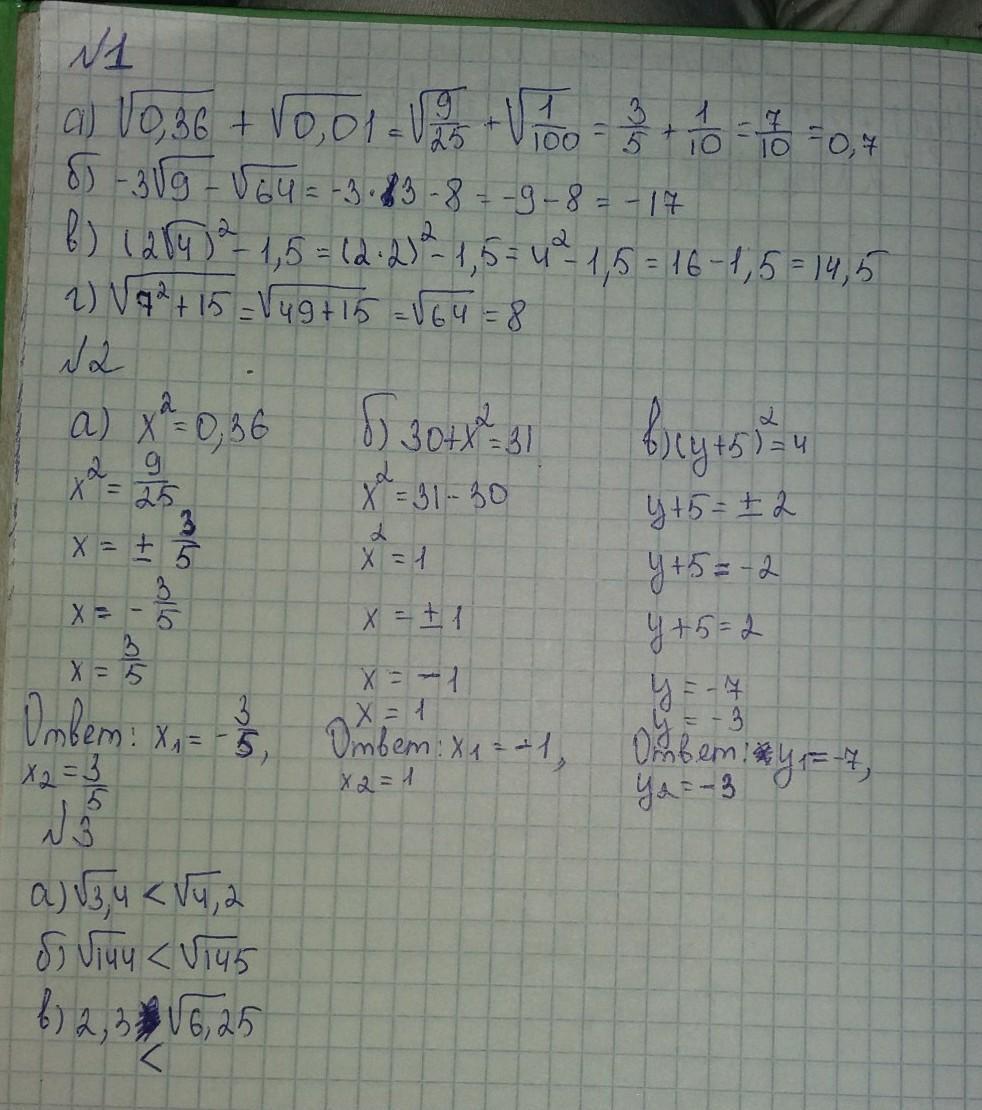 №1
а) √0,36 + √0,01 = √9/25 + √1/100 = 3/5 + 1/10 = 7/10 = 0,7
б) -3√9 - √64 = -3·3 - 8 = -9 - 8 = -17
в) (2√4)² - 1,5 = (2·2)² - 1,5 = 4² - 1,5 = 16 - 1,5 = 14,5
г) √7²+15 = √49+15 = √64 = 8
№2
а) x² = 0,36
x² = 9/25
x = ± 3/5
x = - 3/5
x = 3/5
Ответ: x₁ = - 3/5,
x₂ = 3/5
б) 30+x² = 31
x² = 31 - 30
x² = 1
x = ± 1
x = -1
x = 1
Ответ: x₁ = -1,
x₂ = 1
в) (y+5)² = 4
y+5 = ± 2
y+5 = -2
y+5 = 2
y = -7
y = -3
Ответ: y₁ = -7,
y₂ = -3
№3
а) √3,4 < √4,2
б) √144 < √145
в) 2,3 < √6,25